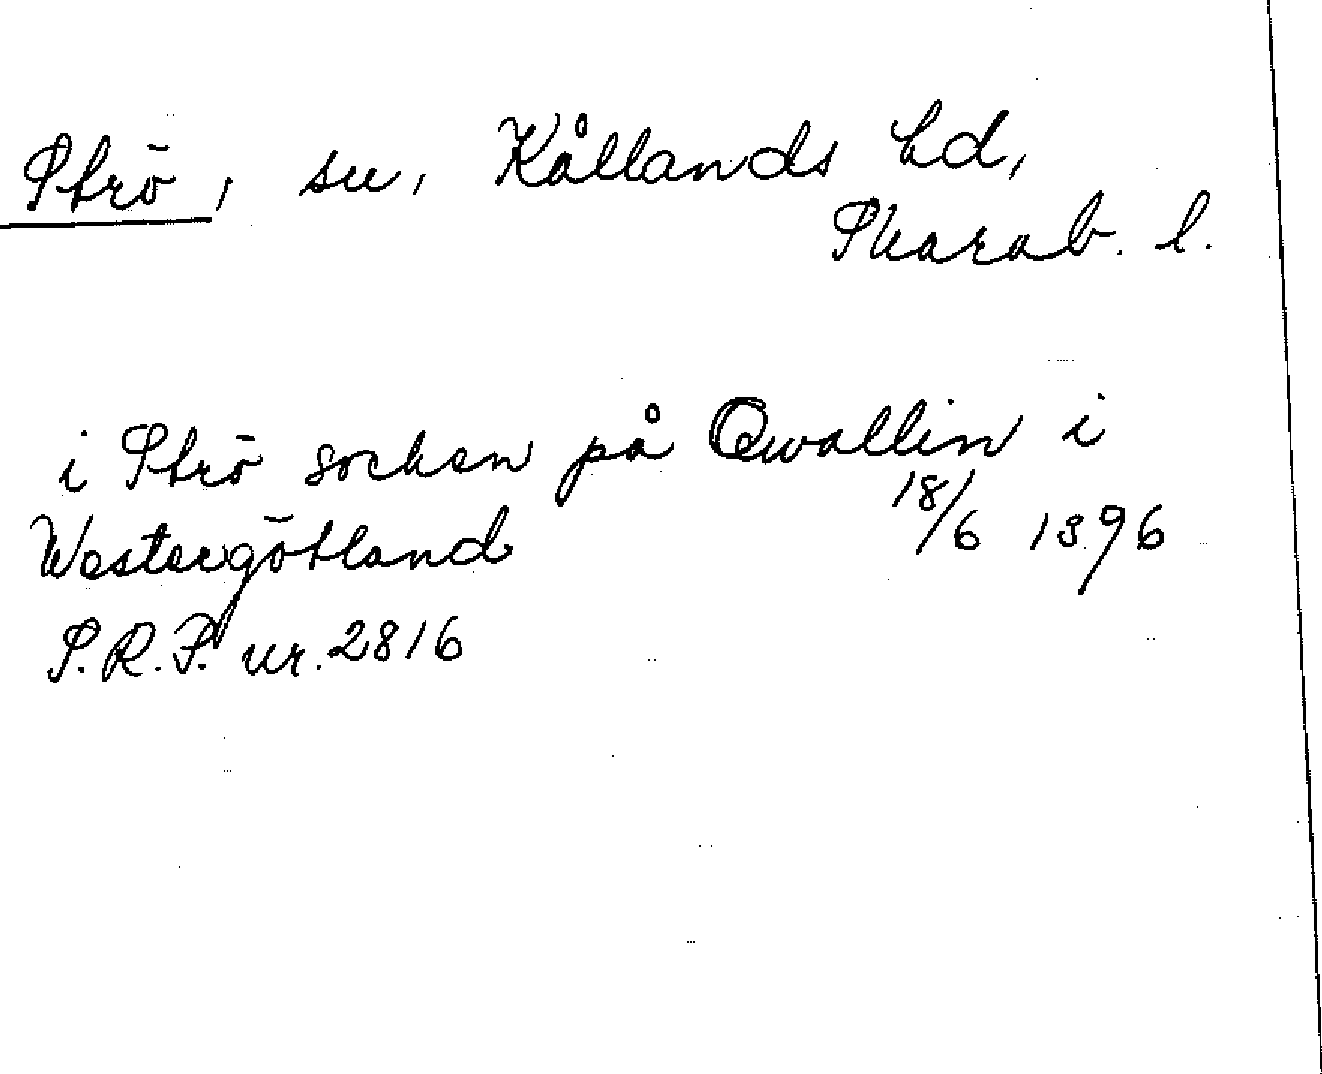 Strö, sn, Kållands hd,
Skarab. l.
i Strö socken på Qwallin i
Westergötland 18/6 1396
S.R.P. nr. 2816